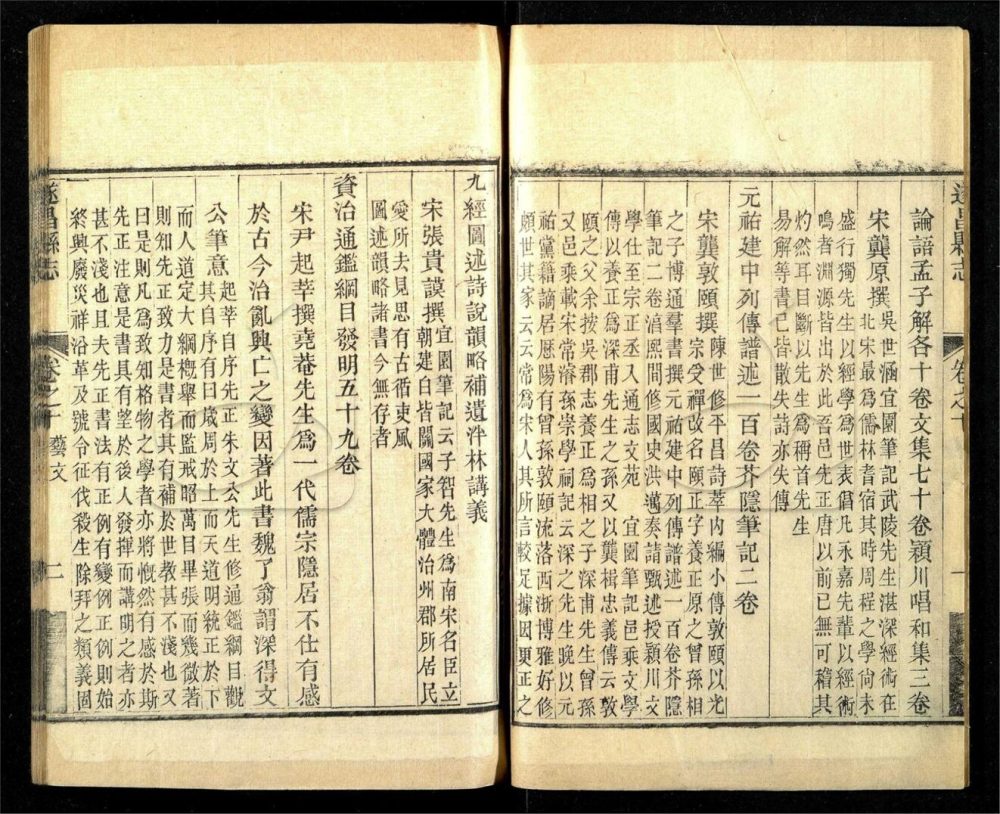 遂昌縣志 卷之十 一
論語孟子解各十卷文集七十卷穎川唱和集三卷
宋龔原撰 吳世涵宜園筆記武陵先生湛深經術在
北宋最爲儒林耆宿其時周程之學尙未
盛行獨先生以經學爲世表倡凡永嘉先輩以經術
鳴者淵源皆出於此吾邑先正唐以前已無可稽其
灼然耳目斷以先生爲稱首先生
易解等書已皆散失詩亦失傳
元祐建中列傳譜述一百卷芥隱筆記二卷
宋龔敦頤撰 陳世修平昌詩萃內編小傳敦頤以光
宗受禪改名頤正字養正原之曾孫相
之子博通羣書撰元祐建中列傳譜述一百卷芥隱
筆記二卷淳熙間修國史洪邁奏請甄述授穎川文
學仕至宗正丞入通志文苑 宜園筆記邑乘文學
傳以養正爲深甫先生之孫又以龔楫忠義傳云敦
頤之父余按吳郡志養正爲相之子深甫先生曾孫
又邑乘載宋常濬孫崇學祠記云深之先生晚以元
祐黨籍謫居歷陽有曾孫敦頤流落西浙博雅好修
頗世其家云云常爲宋人其所言較足據因更正之
九經圖述詩說韻略補遺泮林講義
宋張貴謨撰 宜園筆記云子智先生爲南宋名臣立
朝建白皆關國家大體治州郡所居民
愛所去見思有古循吏風
圖述韻略諸書今無存者
資治通鑑綱目發明五十九卷
宋尹起莘撰堯菴先生爲一代儒宗隱居不仕有感
於古今治亂興亡之變因著此書魏了翁謂深得文
公筆意 起莘自序先正朱文公先生修通鑑綱目觀
其自序有曰歲周於上而天道明統正於下
而人道定大綱槪舉而監戒昭萬目畢張而幾微著
則知先正致力是書者其有補於世教甚不淺也又
曰是則凡爲致知格物之學者亦將慨然有感於斯
先正注意是書具有望於後人發揮而講明之者亦
甚不淺也且夫先正書法有正例有變例正例則始
終興廢災祥沿革及號令征伐殺生除拜之類義固
遂昌縣志 卷之十 藝文 二